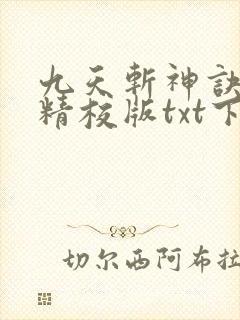 九天斩神訣
精校版txt下
切尔西阿布拉